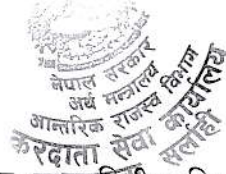 नेपाल सरकार
अर्थ मन्त्रालय
आन्तरिक राजस्व विभाग
करदाता सेवा कार्यालय
सर्लाही